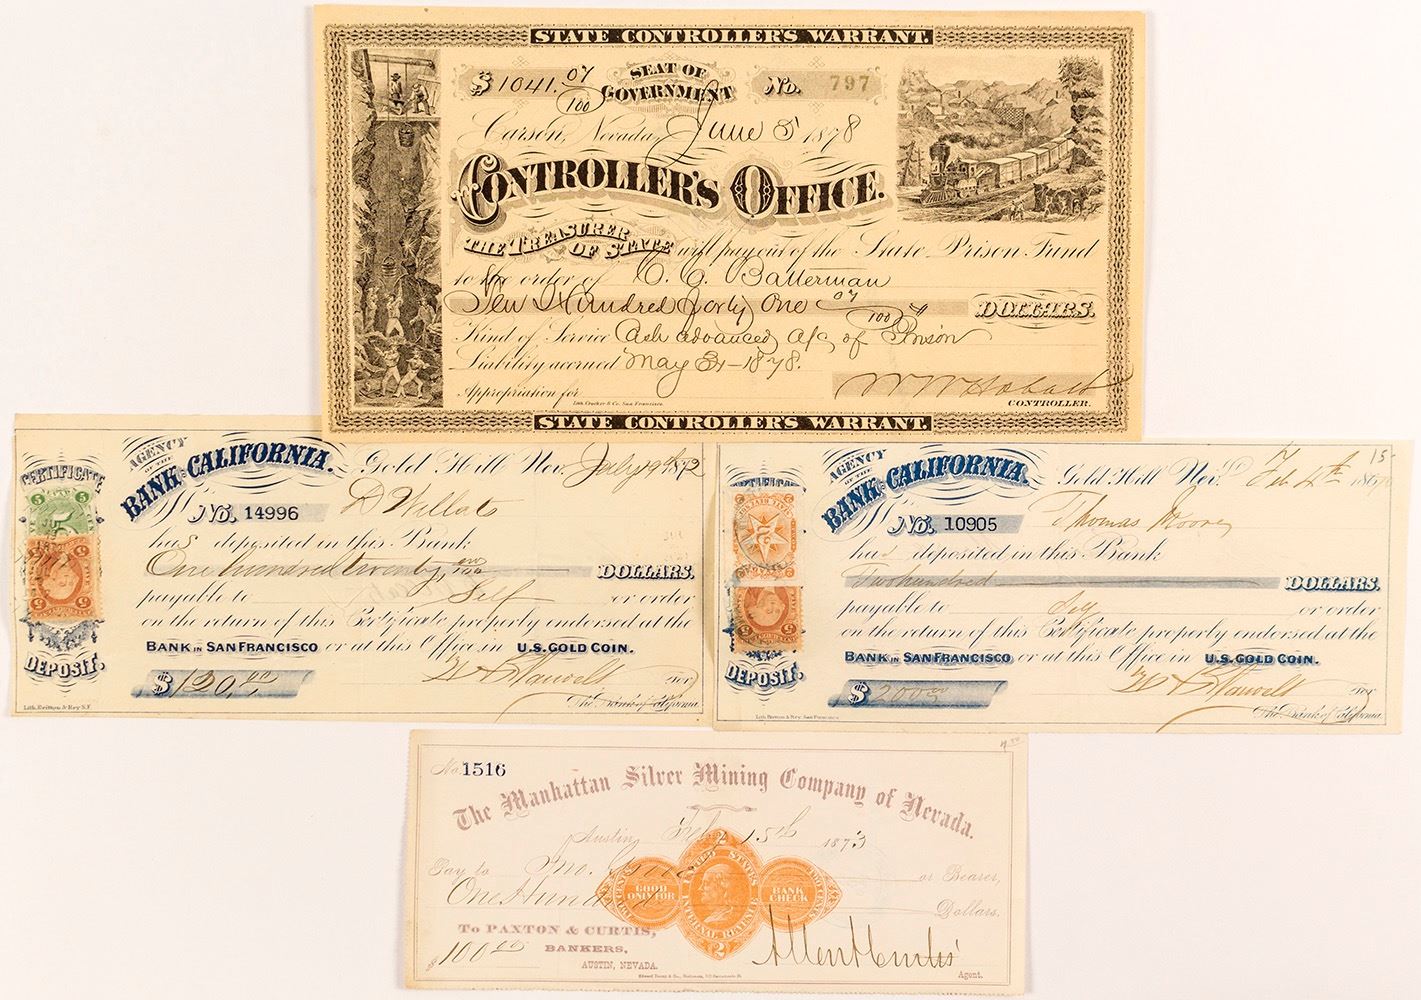 STATE CONTROLLER'S WARRANT.
$1041. 07/100 SEAT OF GOVERNMENT No. 797
Carson, Nevada, June 3 1878
CONTROLLER'S OFFICE.
THE TREASURER OF STATE will pay out of the State Prison Fund
to the order of C. C. Batterman
Ten Hundred forty One 07/100 DOLLARS.
Kind of Service Cash advanced a/c of Prison
Liability accrued May 31-1878.
Appropriation for
W W Hobart
Lith. Crocker & Co. San Francisco. CONTROLLER.
STATE CONTROLLER'S WARRANT.
CERTIFICATE
DEPOSIT.
AGENCY OF THE
BANK OF CALIFORNIA. Gold Hill Nev. July 9th 1872
No. 14996 D Willats
has deposited in this Bank
One hundred twenty DOLLARS.
payable to Self or order
on the return of this Certificate properly endorsed at the
BANK IN SAN FRANCISCO or at this Office in U.S. GOLD COIN.
$120.00
for
The Bank of California.
Lith. Britton & Rey S.F.
CERTIFICATE
DEPOSIT.
15-
AGENCY OF THE
BANK OF CALIFORNIA. Gold Hill Nev. Feb 4th
No. 10905 Thomas Moore
has deposited in this Bank
Two hundred DOLLARS.
payable to or order
on the return of this Certificate properly endorsed at the
BANK IN SAN FRANCISCO or at this Office in U.S. GOLD COIN.
$200
for
The Bank of California.
Lith. Britton & Rey, San Francisco
No. 1516
The Manhattan Silver Mining Company of Nevada.
Austin, Feby 15th 1873
Pay to Jno. or Bearer,
One Hundred Dollars.
UNITED STATES
GOOD ONLY FOR BANK CHECK
INTERNAL REVENUE
2
TO PAXTON & CURTIS,
BANKERS,
$100 00 AUSTIN, NEVADA.
Allen A Curtis
Agent.